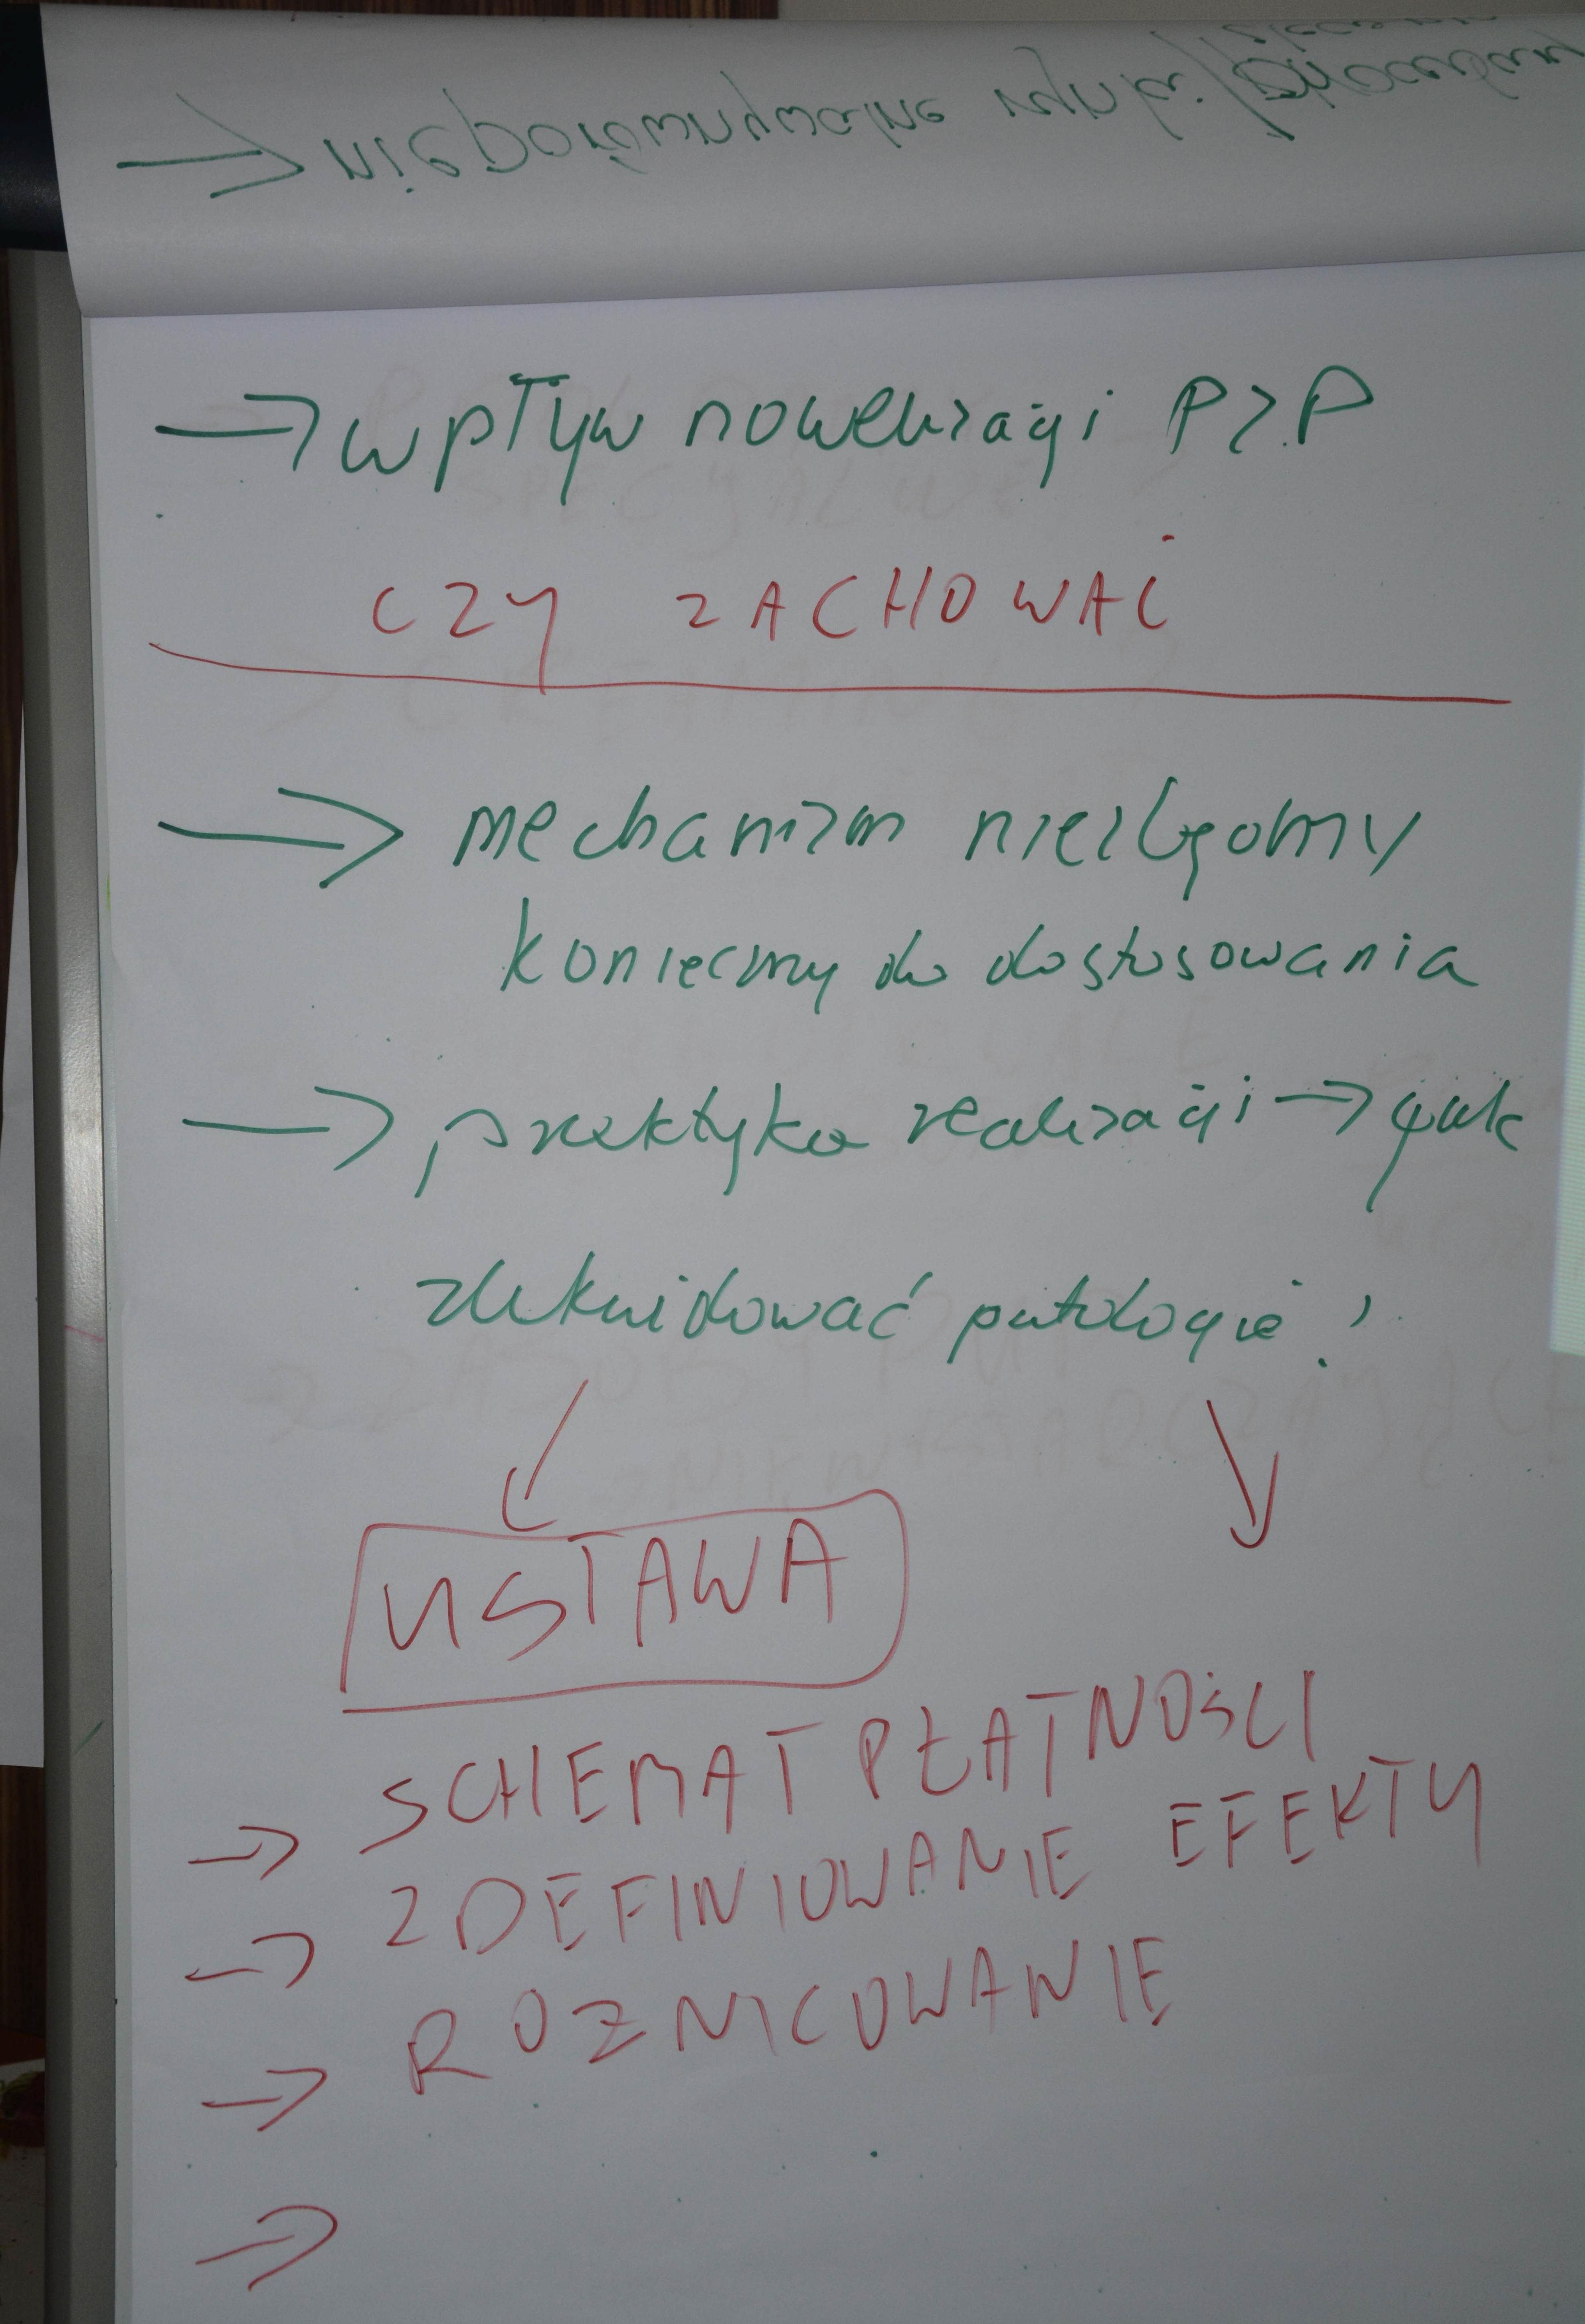 → nieporównywalne rynki/procedury
→ wpływ nowelizacji PZP
CZY ZACHOWAĆ
→ mechanizm niezbędny
konieczny do dostosowania
→ praktyka realizacji → jak
zlikwidować patologie?
USTAWA
SCHEMAT PŁATNOŚCI
→ ZDEFINIOWANIE EFEKTY
→ ROZNICOWANIE
→
→